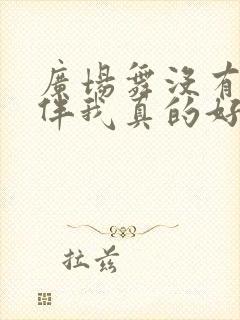 廣場舞沒有
伴我真的好
拉茲